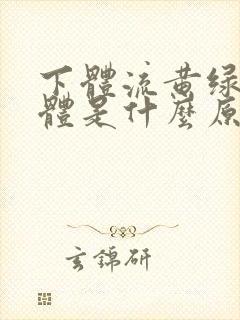 下體流黄绿
體是什麼原
玄錦研